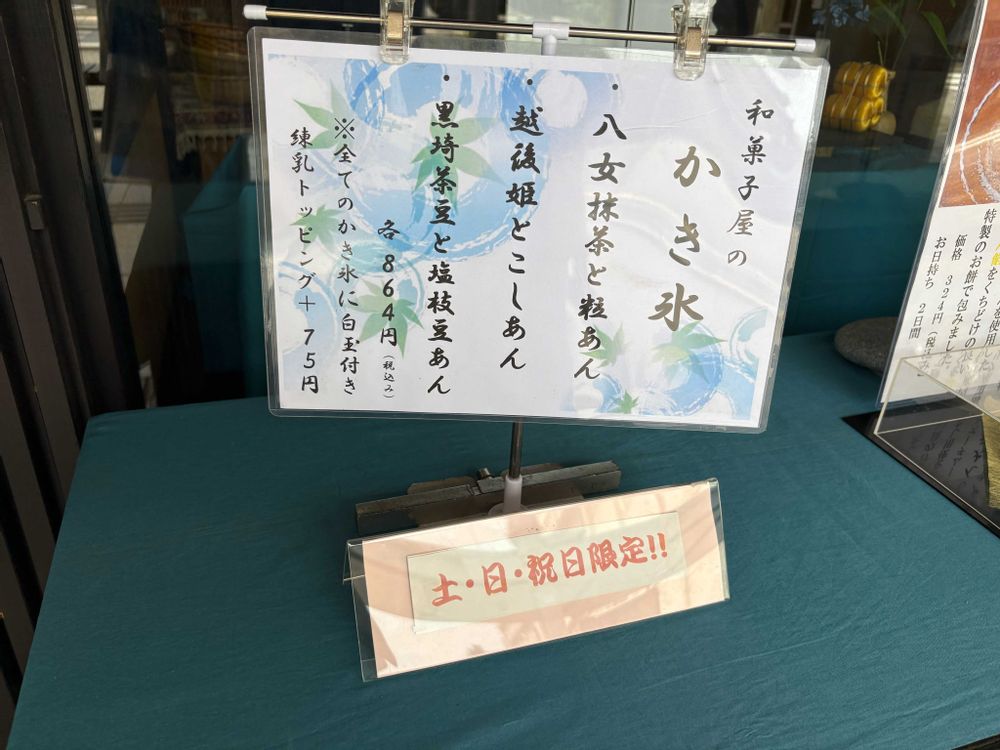 和菓子屋の
かき氷
・八女抹茶と粒あん
・越後姫とこしあん
・黒埼茶豆と塩枝豆あん
各864円(税込み)
※全てのかき氷に白玉付き
練乳トッピング+75円
土・日・祝日限定!!
を使用した
をくちどけの良い
特製のお餅で包みました。
価格 324円(税込
お日持ち 2日間